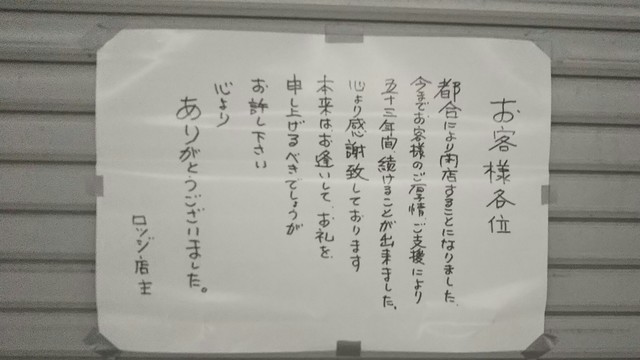 お客様各位
都合により閉店することになりました
今までお客様のご厚情、ご支援により
五十三年間、続けることが出来ました、
心より感謝致しております
本来はお逢いして、お礼を、
申し上げるべきでしょうが
お許し下さい
心より
ありがとうございました。
ロッジ店主